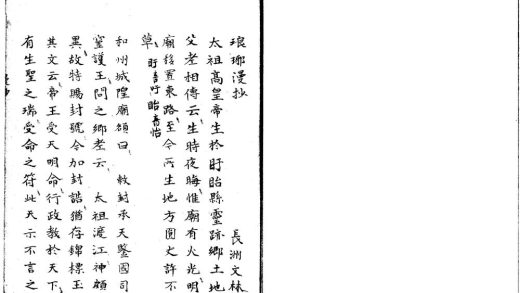 琅琊漫抄
長洲文林
太祖髙皇帝生於盱眙縣靈跡鄉土地
父老相傳云生時夜晦惟廟有火光明
廟後置東路至今所生地方圓丈許不
草盱音吁眙音怡
和州城隍廟額曰 敕封承天鑒國司
靈護王問之鄉老云 太祖渡江神顯
異故特賜封號令加封誥猶存錦標玉
其文云帝王受天明命行政教於天下
有生聖之瑞受命之符此天示不言之